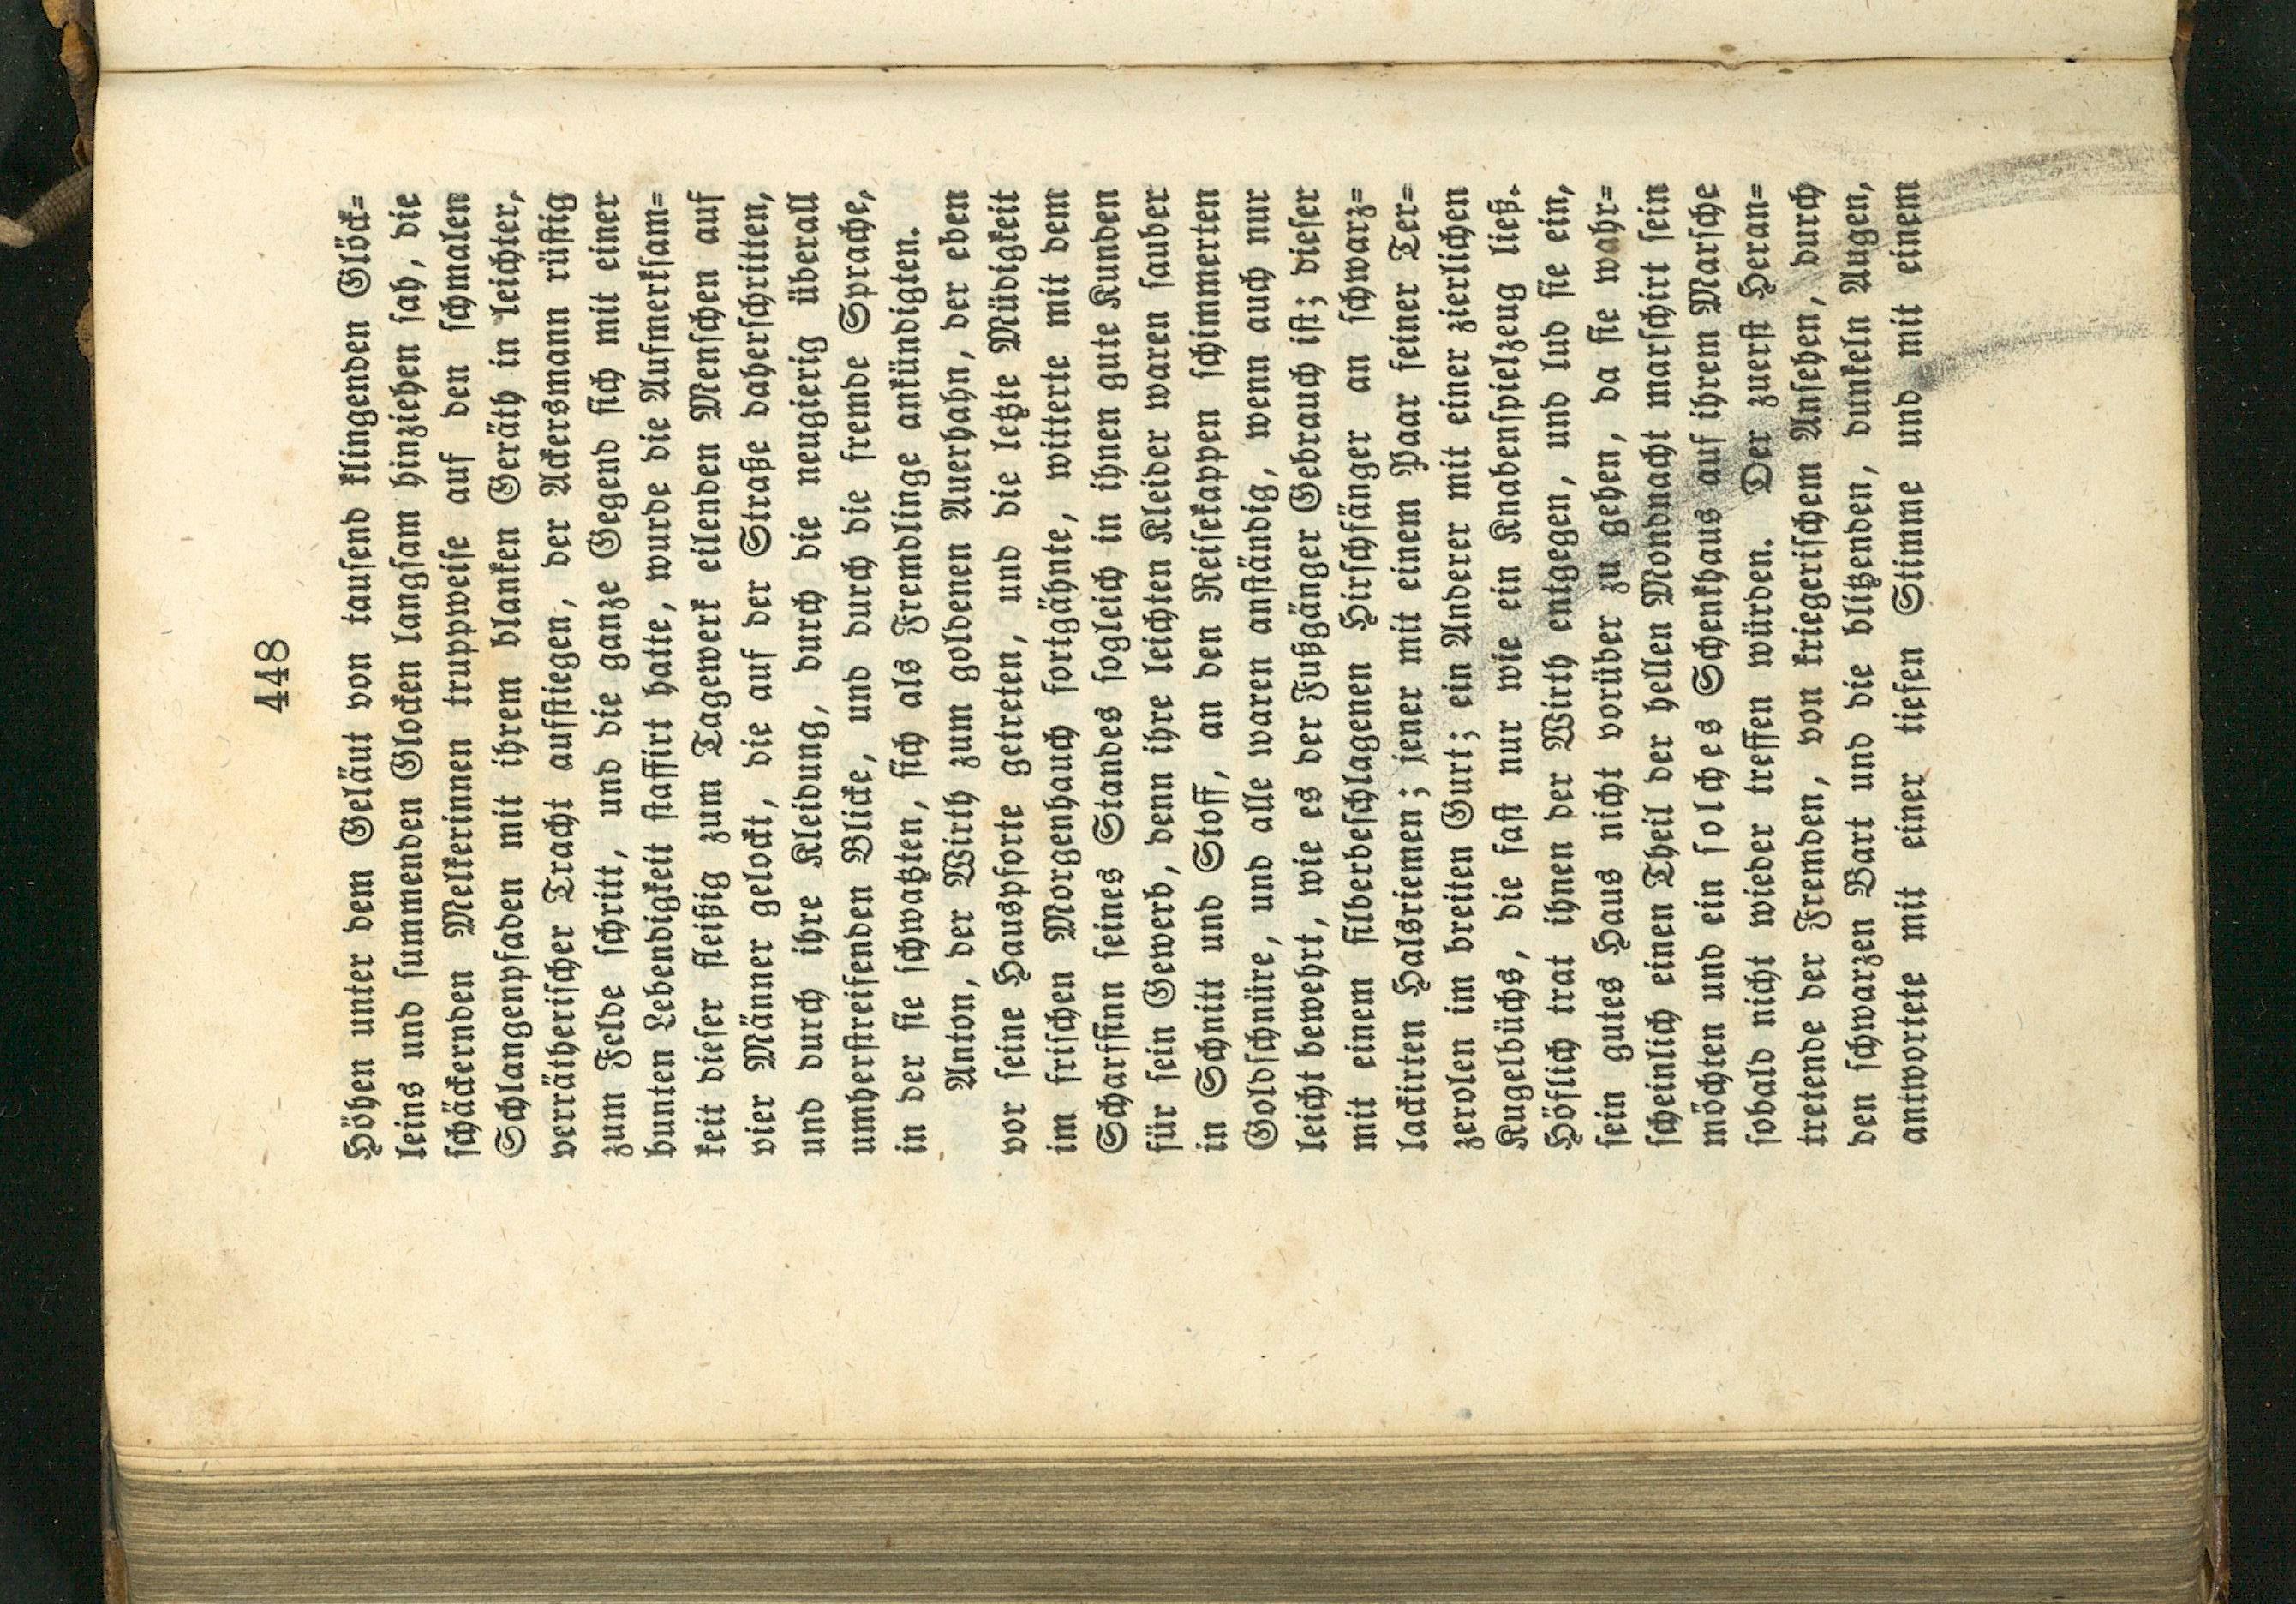 448
Höhen unter dem Geläut von tausend klingenden Glöck=
leins und summenden Glocken langsam hinziehen sah, die
schäckernden Melkerinnen truppweise auf den schmalen
Schlangenpfaden mit ihrem blanken Geräth in leichter,
verrätherischer Tracht aufstiegen, der Ackersmann rüstig
zum Felde schritt, und die ganze Gegend sich mit einer
bunten Lebendigkeit staffirt hatte, wurde die Aufmerksam=
keit dieser fleißig zum Tagewerk eilenden Menschen auf
vier Männer gelockt, die auf der Straße daherschritten,
und durch ihre Kleidung, durch die neugierig überall
umherstreifenden Blicke, und durch die fremde Sprache,
in der sie schwatzten, sich als Fremdlinge ankündigten.
Anton, der Wirth zum goldenen Auerhahn, der eben
vor seine Hauspforte getreten, und die letzte Müdigkeit
im frischen Morgenhauch fortgähnte, witterte mit dem
Scharfsinn seines Standes sogleich in ihnen gute Kunden
für sein Gewerb, denn ihre leichten Kleider waren sauber
in Schnitt und Stoff, an den Reisekappen schimmerten
Goldschnüre, und alle waren anständig, wenn auch nur
leicht bewehrt, wie es der Fußgänger Gebrauch ist; dieser
mit einem silberbeschlagenen Hirschfänger an schwarz=
lackirten Halsriemen; jener mit einem Paar feiner Ter=
zerolen im breiten Gurt; ein Anderer mit einer zierlichen
Kugelbüchs, die fast nur wie ein Knabenspielzeug ließ.
Höflich trat ihnen der Wirth entgegen, und lud sie ein,
sein gutes Haus nicht vorüber zu gehen, da sie wahr=
scheinlich einen Theil der hellen Mondnacht marschirt sein
möchten und ein solches Schenkhaus auf ihrem Marsche
sobald nicht wieder treffen würden. Der zuerst Heran=
tretende der Fremden, von kriegerischem Ansehen, durch
den schwarzen Bart und die blitzenden, dunkeln Augen,
antwortete mit einer tiefen Stimme und mit einem